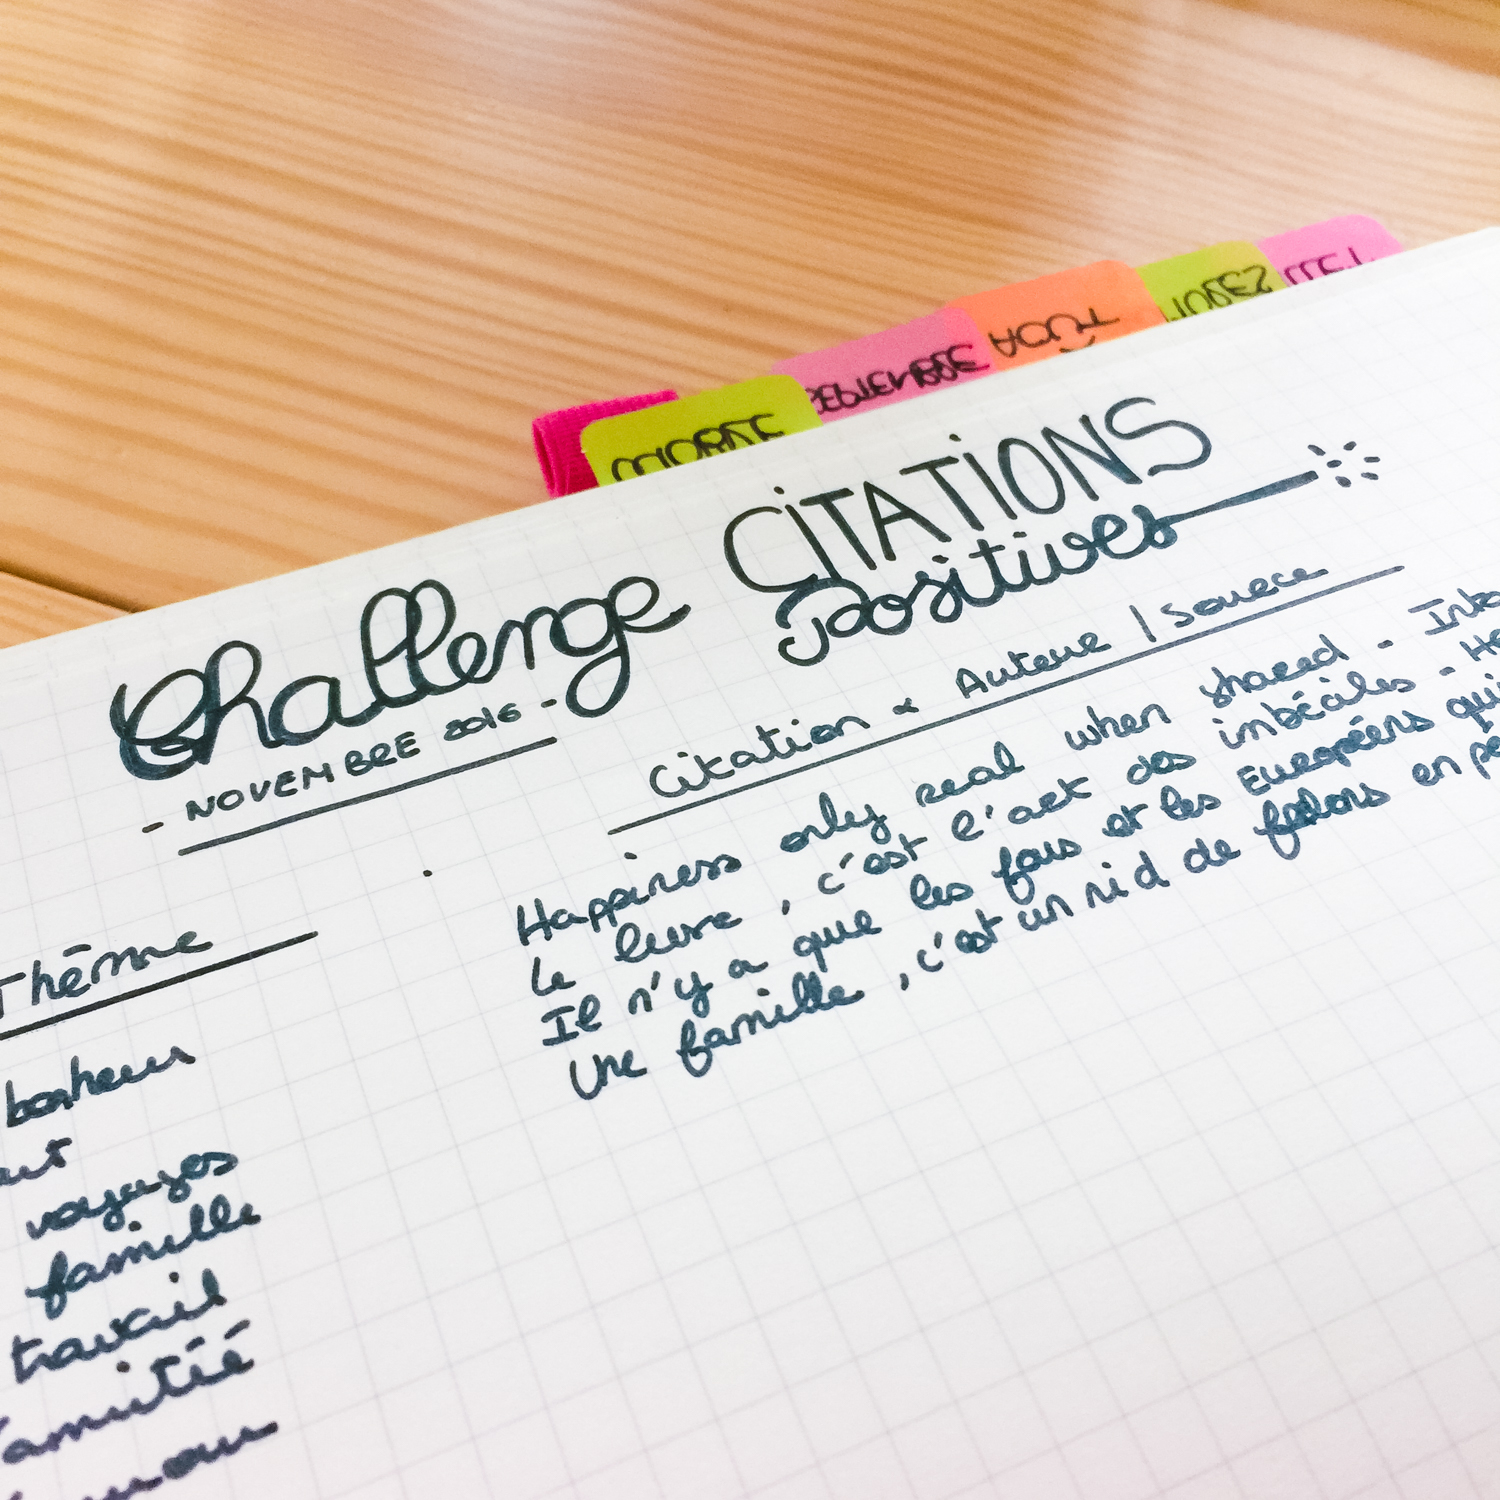 OCTOBRE
SEPTEMBRE
AOÛT
Challenge CITATIONS
positives
- NOVEMBRE 2016 -
Citation & Auteur / Source
Happiness only real when shared - Into
le livre, c'est l'art des imbéciles - He
Il n'y a que les fous et les Européens qui
Une famille, c'est un nid de
Thème
bonheur
art
voyages
famille
travail
l'amitié